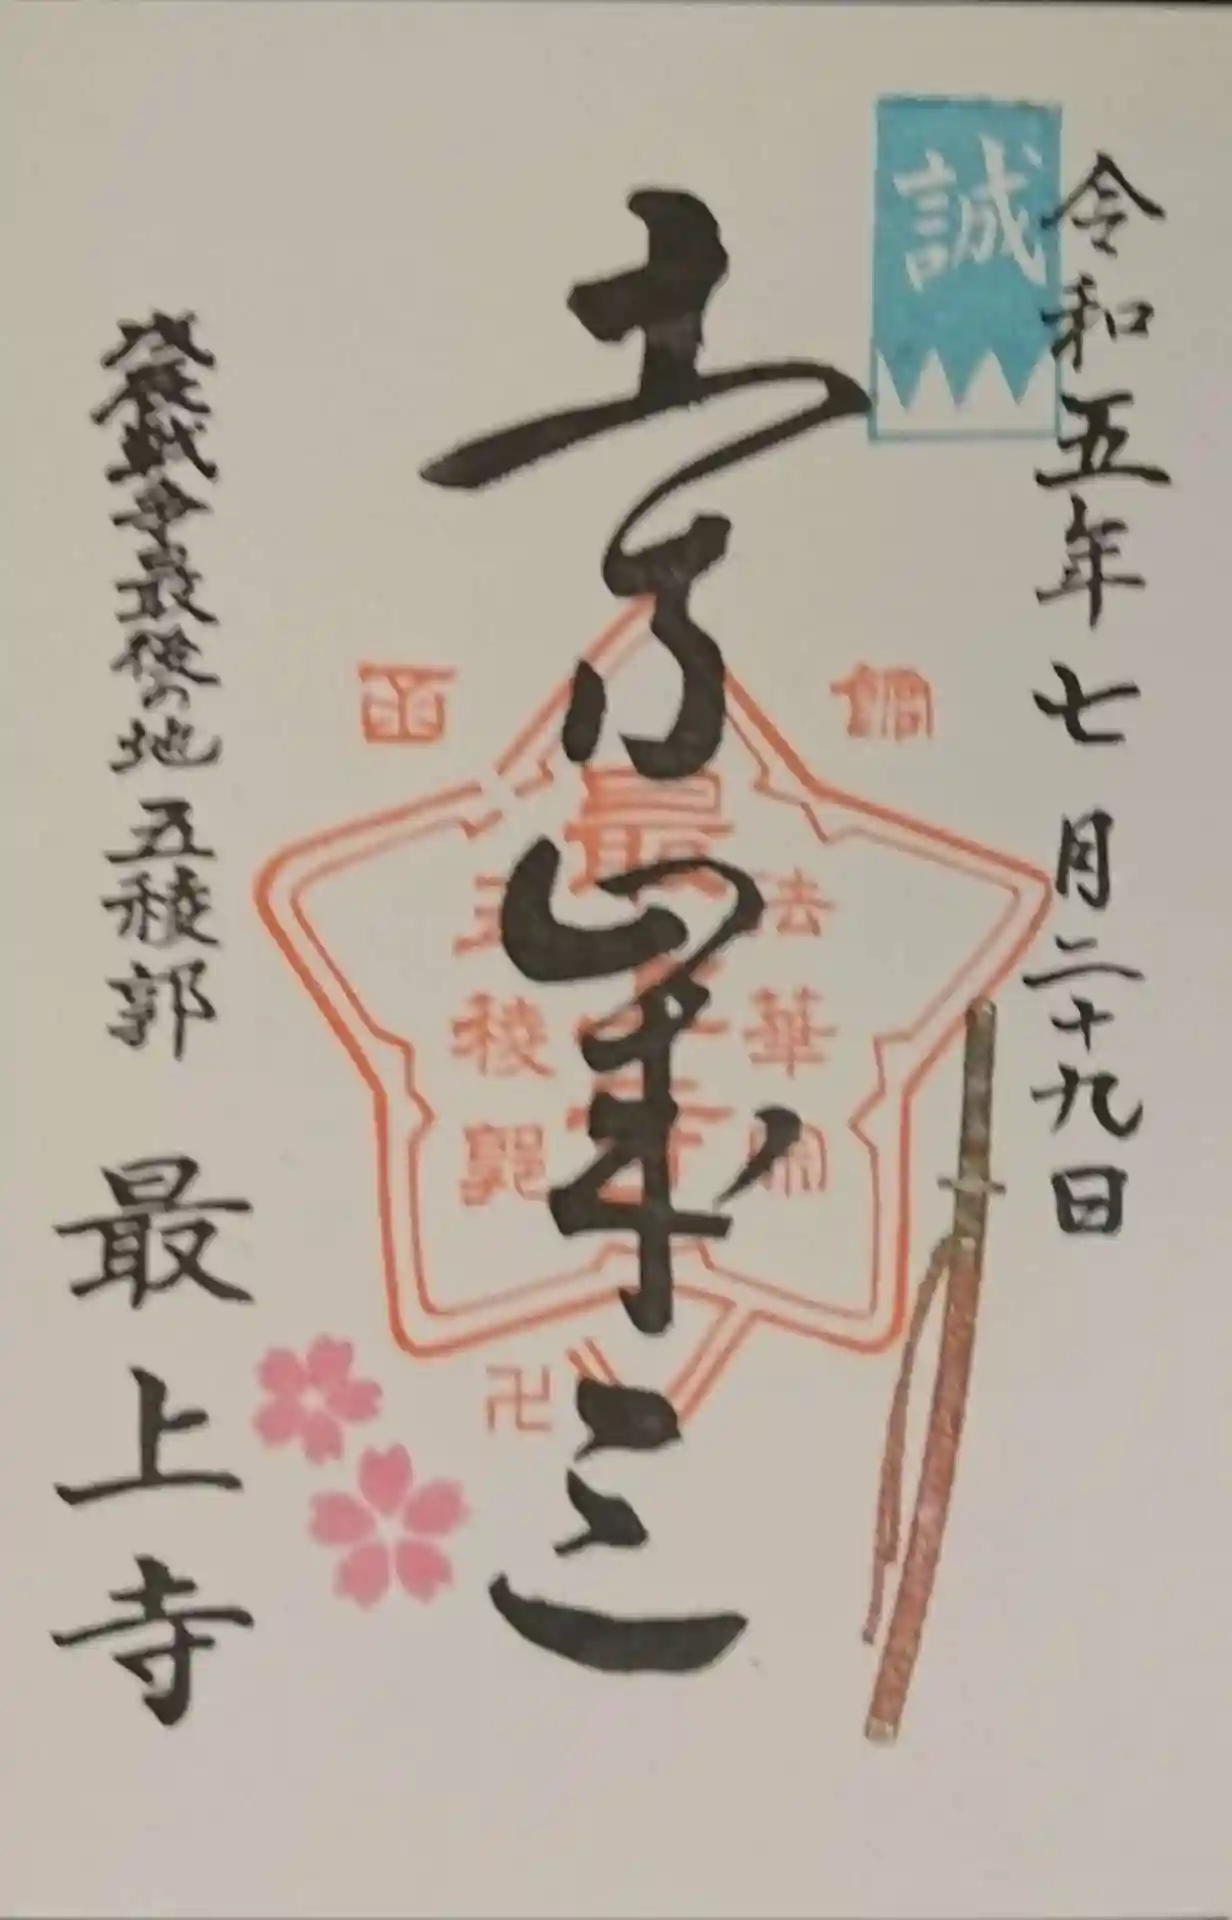 誠
令和五年七月二十九日
土方歳三
函館
法華宗
最上寺
五稜郭
卍
戊辰戦争最後の地 五稜郭 最上寺